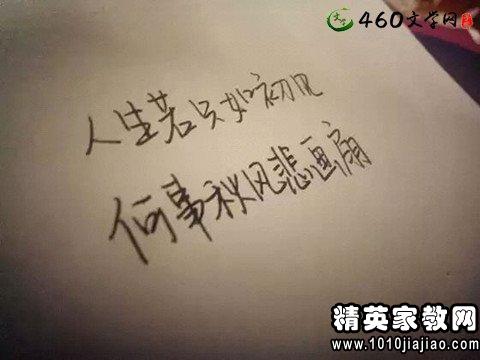 460文学网
人生若只如初见
何事秋风悲画扇
精英家教网
www.1010jiajiao.com